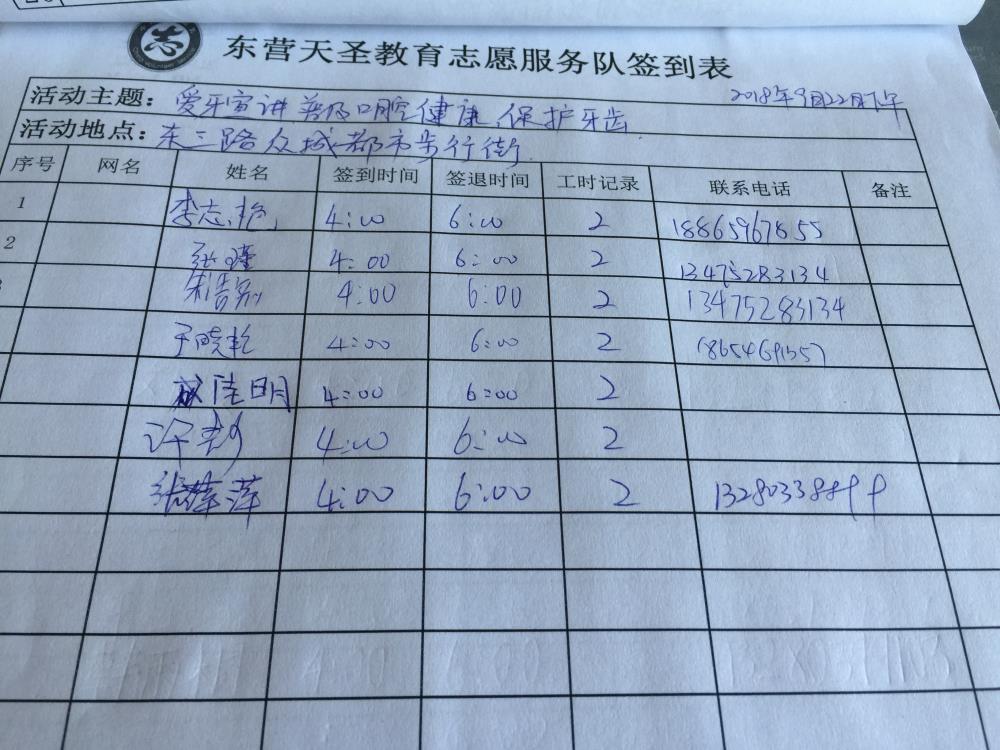 志
东营天圣教育志愿服务队签到表
2018年9月22月下午
活动主题：爱牙宣讲 普及口腔健康,保护牙齿
活动地点：东三路众城都市步行街
序号 网名 姓名 签到时间 签退时间 工时记录 联系电话 备注
1 李志艳 4:00 6:00 2 18865967855
2 张瑾 4:00 6:00 2 13475283134
4:00 6:00 2 13475283134
于晓乾 4:00 6:00 2 18654691357
陆明 4:00 6:00 2
许 4:00 6:00 2
张萍 4:00 6:00 2